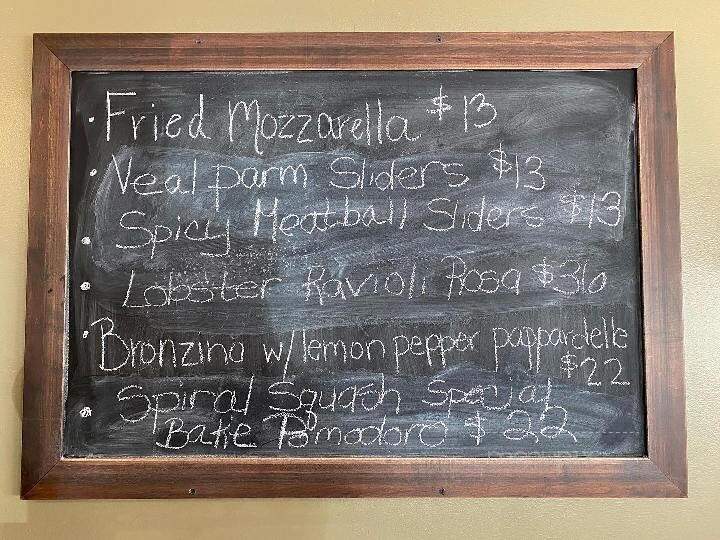 Fried Mozzarella $13
Veal parm Sliders $13
Spicy Meatball Sliders $13
Lobster Ravioli Rosa $36
Bronzino w/lemon pepper pappardelle
$22
Spiral Squash Special
Bake Pomodoro $22